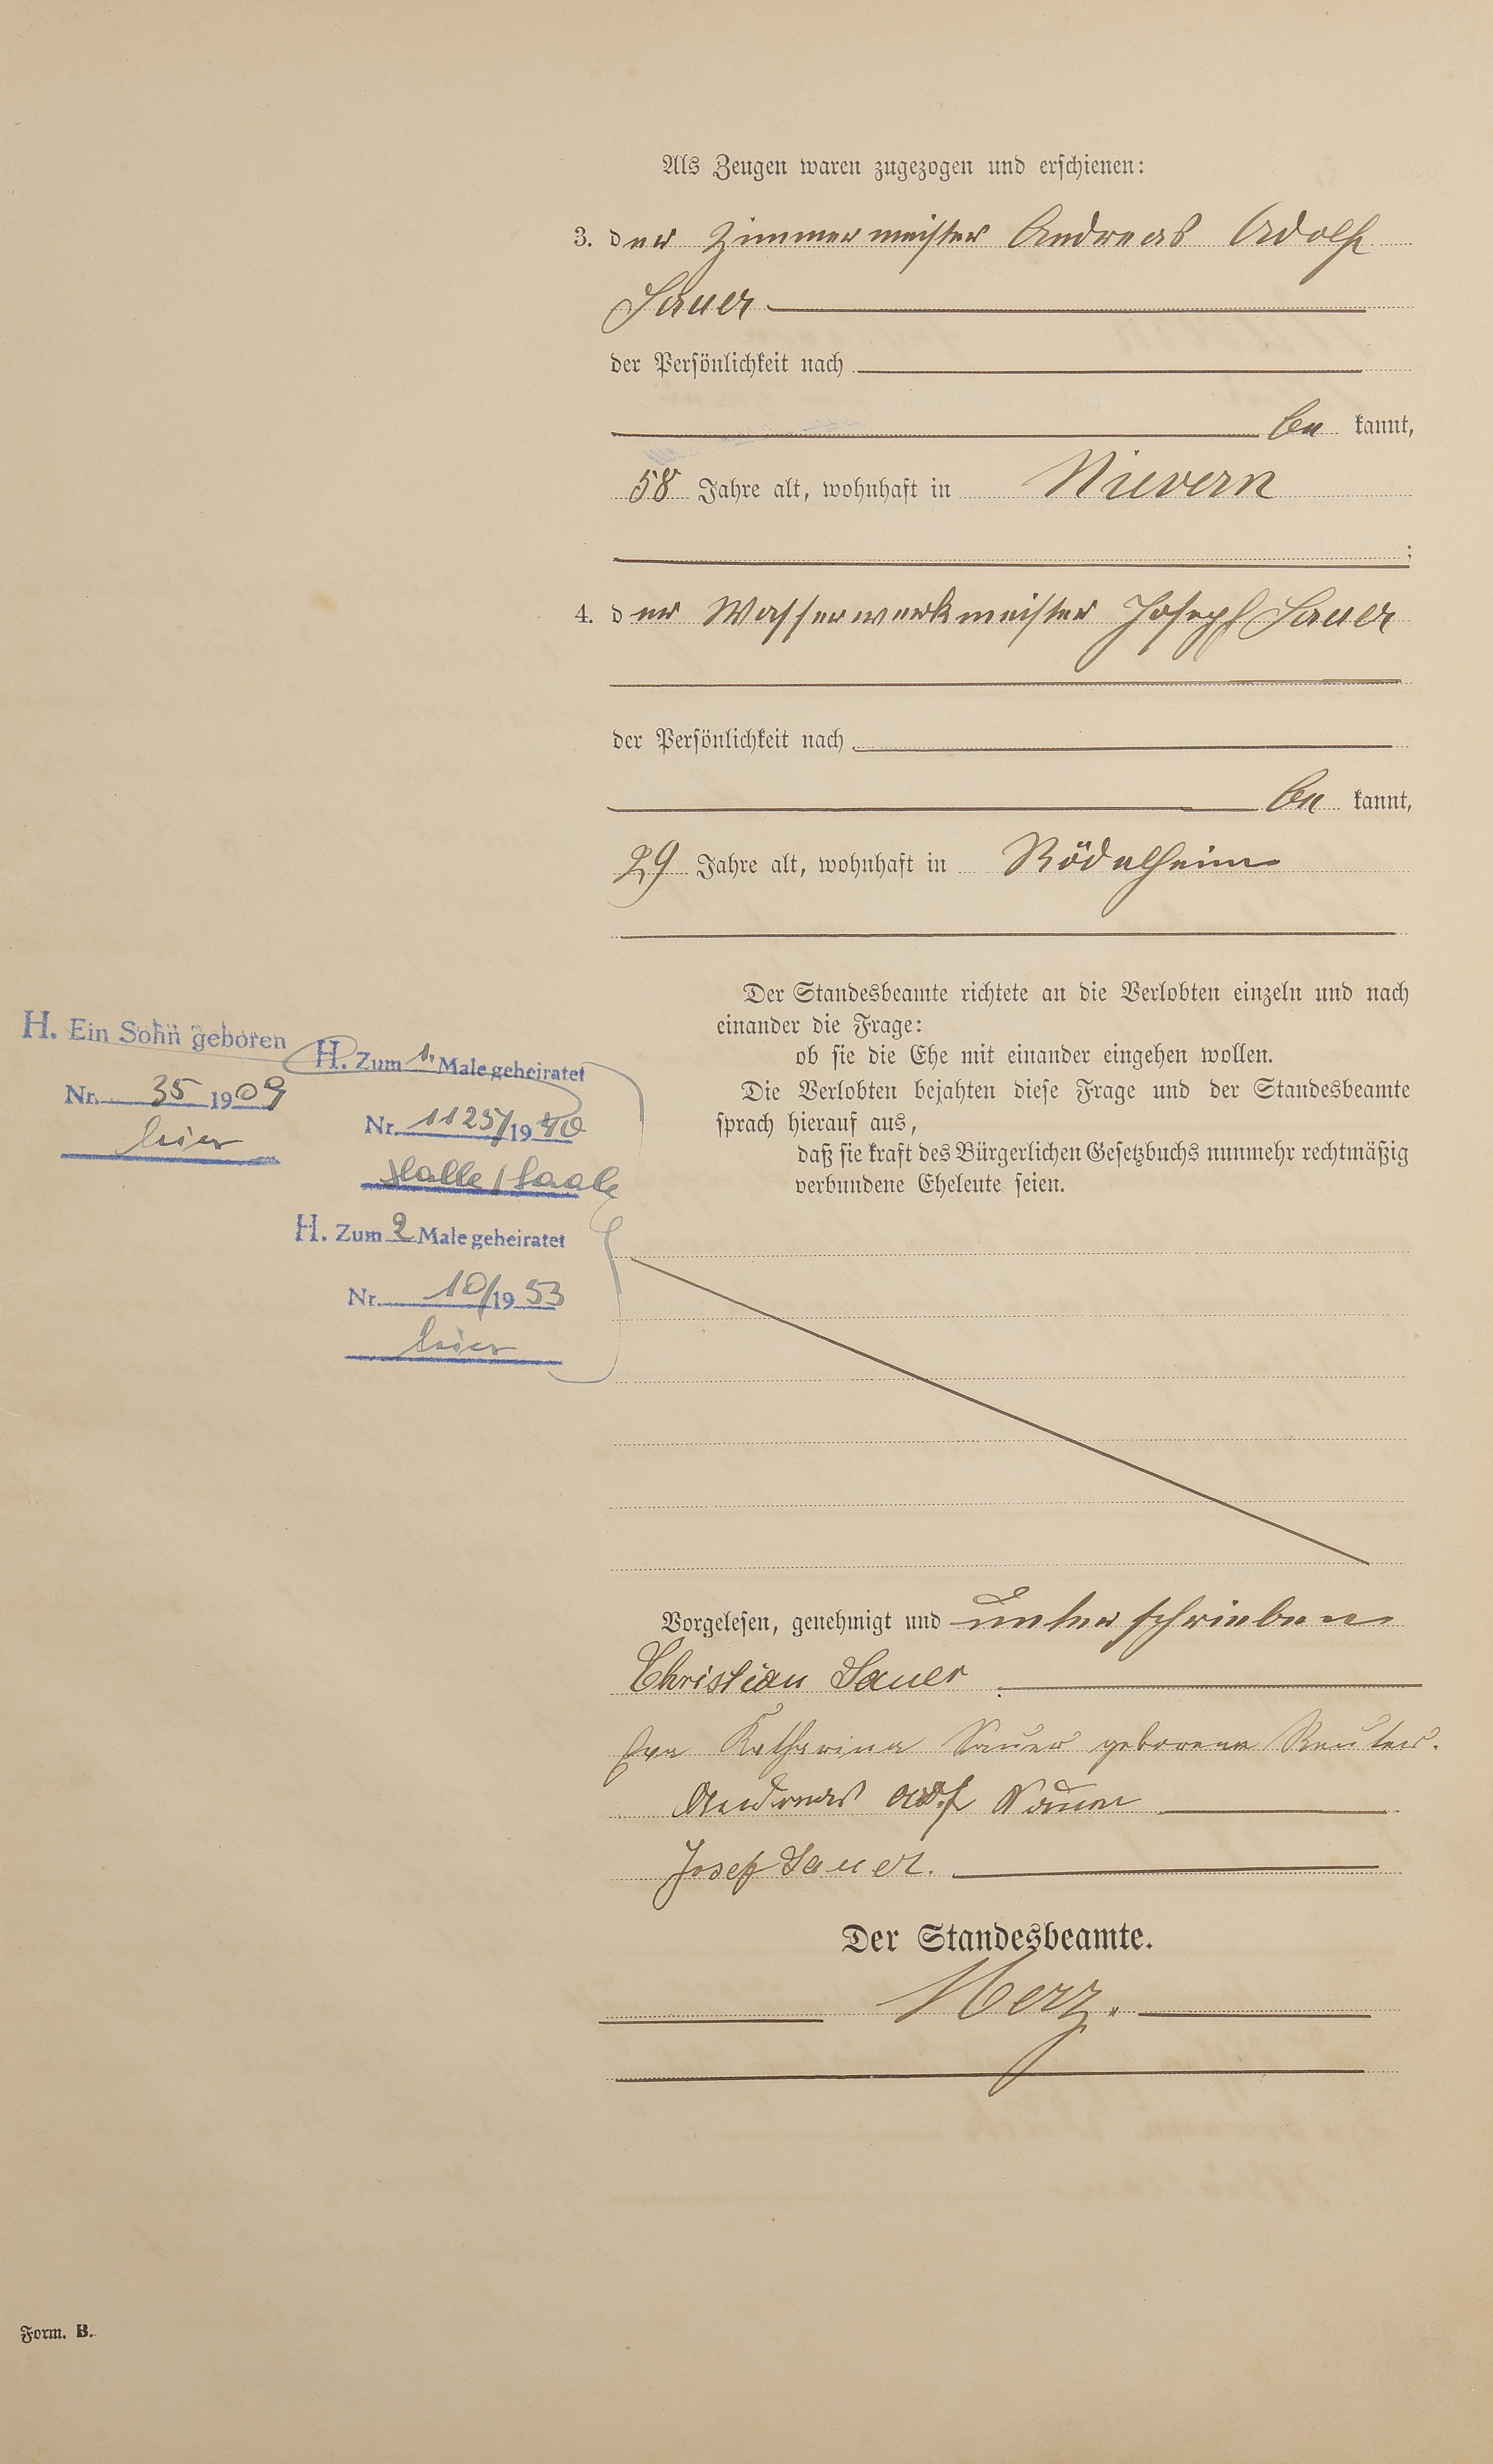 Als Zeugen waren zugezogen und erschienen:
3. der Zimmermeister Andreas Adolf
Sauer
der Persönlichkeit nach
be kannt,
58 Jahre alt, wohnhaft in Nievern
;
4. der Wasserwerkmeister Josef Sauer
der Persönlichkeit nach
be kannt,
29 Jahre alt, wohnhaft in Rödelheim
Der Standesbeamte richtete an die Verlobten einzeln und nach
einander die Frage:
ob sie die Ehe mit einander eingehen wollen.
Die Verlobten bejahten diese Frage und der Standesbeamte
sprach hierauf aus,
daß sie kraft des Bürgerlichen Gesetzbuchs nunmehr rechtmäßig
verbundene Eheleute seien.
H. Ein Sohn geboren
Nr. 35 1909
hier
H. Zum 1. Male geheiratet
Nr. 1125/1940
Halle/Saale
H. Zum 2 Male geheiratet
Nr. 10/1953
hier
Vorgelesen, genehmigt und unterschrieben
Christian Sauer
Eva Katharina Sauer geborene Reuter.
Andreas Adolf Sauer
Josef Sauer.
Der Standesbeamte.
Merz.
Form. B.